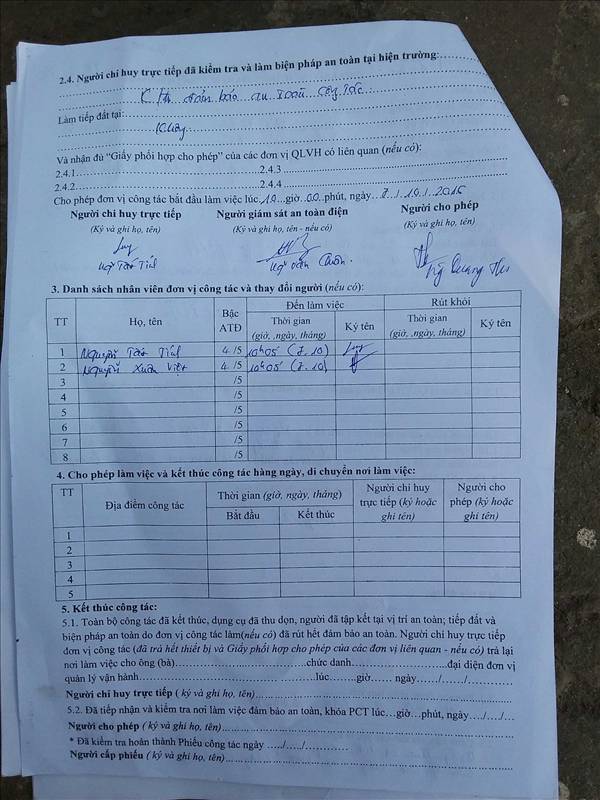 2.4. Người chỉ huy trực tiếp đã kiểm tra và làm biện pháp an toàn tại hiện trường:
đảm bảo an toàn công tác
Làm tiếp đất tại:
Không
Và nhận đủ “Giấy phối hợp cho phép” của các đơn vị QLVH có liên quan (nếu có):
2.4.1 2.4.3
2.4.2 2.4.4
Cho phép đơn vị công tác bắt đầu làm việc lúc 10 giờ 00 phút, ngày 7 / 10 / 2016
Người chỉ huy trực tiếp Người giám sát an toàn điện Người cho phép
(Ký và ghi họ, tên) (Ký và ghi họ, tên - nếu có) (Ký và ghi họ, tên)
3. Danh sách nhân viên đơn vị công tác và thay đổi người (nếu có):
TT Họ, tên Bậc ATĐ Đến làm việc Rút khỏi
Thời gian (giờ, ,ngày, tháng) Ký tên Thời gian (giờ, ,ngày, tháng) Ký tên
1 Nguyễn Tấn 4 /5 10h05' (7.10)
2 Nguyễn Xuân Việt 4 /5 10h05' (7.10)
3 /5
4 /5
5 /5
6 /5
7 /5
8 /5
4. Cho phép làm việc và kết thúc công tác hàng ngày, di chuyển nơi làm việc:
TT Địa điểm công tác Thời gian (giờ, ngày, tháng) Người chỉ huy trực tiếp (ký hoặc ghi tên) Người cho phép (ký hoặc ghi tên)
Bắt đầu Kết thúc
1
2
3
4
5
5. Kết thúc công tác:
5.1. Toàn bộ công tác đã kết thúc, dụng cụ đã thu dọn, người đã tập kết tại vị trí an toàn; tiếp đất và
biện pháp an toàn do đơn vị công tác làm(nếu có) đã rút hết đảm bảo an toàn. Người chỉ huy trực tiếp
đơn vị công tác (đã trả hết thiết bị và Giấy phối hợp cho phép của các đơn vị liên quan - nếu có) trả lại
nơi làm việc cho ông (bà) chức danh đại diện đơn vị
quản lý vận hành lúc giờ ngày / /
Người chỉ huy trực tiếp ( ký và ghi họ, tên)
5.2. Đã tiếp nhận và kiểm tra nơi làm việc đảm bảo an toàn, khóa PCT lúc…giờ…phút, ngày…./…./…
Người cho phép ( ký và ghi họ, tên)
* Đã kiểm tra hoàn thành Phiếu công tác ngày …../…../…………
Người cấp phiếu ( ký và ghi họ, tên)